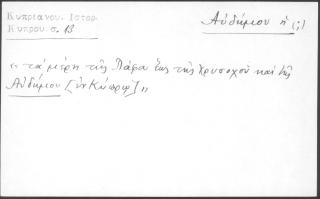 Κυπριανού. Ιστορ.
Κύπρου σ. 13
Αὐδήμιου ἡ (;)
« τά μέρη τῆς Πάφου ἕως τῆς Χρυσοχοῦ καί τῆς
Αὐδήμιου [ἐν Κύπρῳ] »